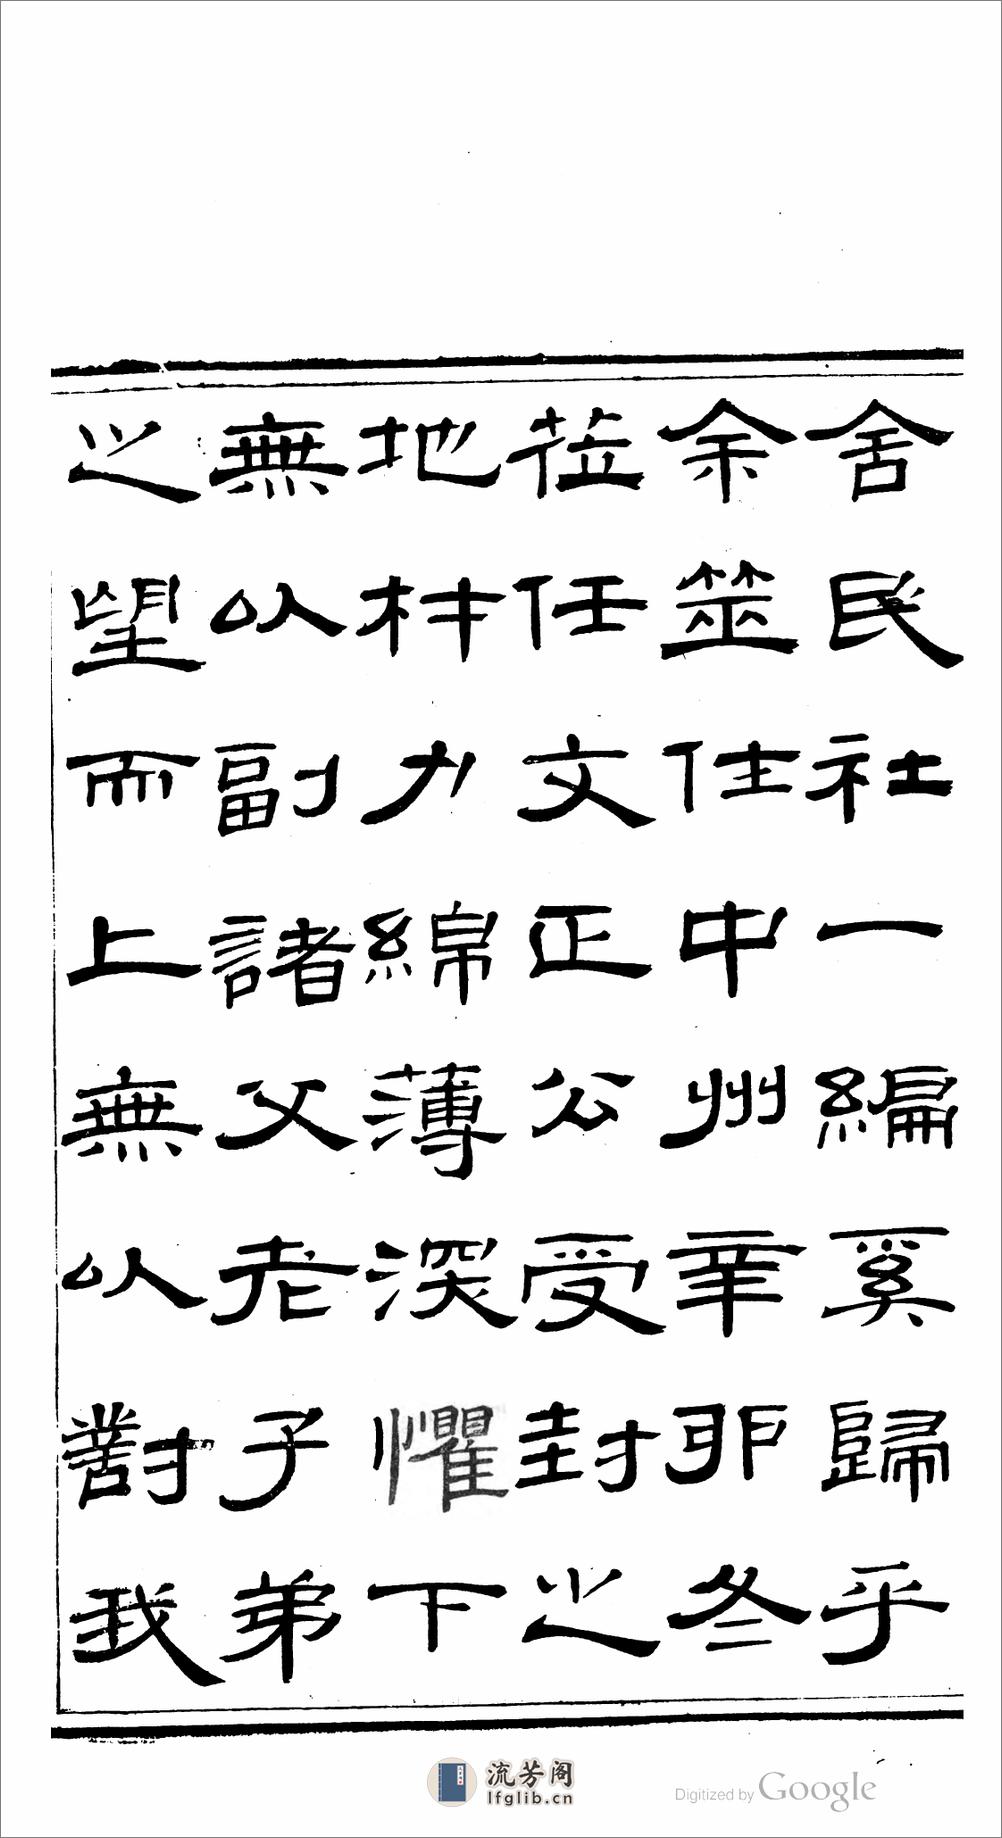 舍民社一編奚歸乎
余筮仕中州辛卯冬
蒞任文正公受封之
地材力綿薄深懼下
無以副諸父老子弟
之望而上無以對我
流芳阁
lfglib.cn
Digitized by Google